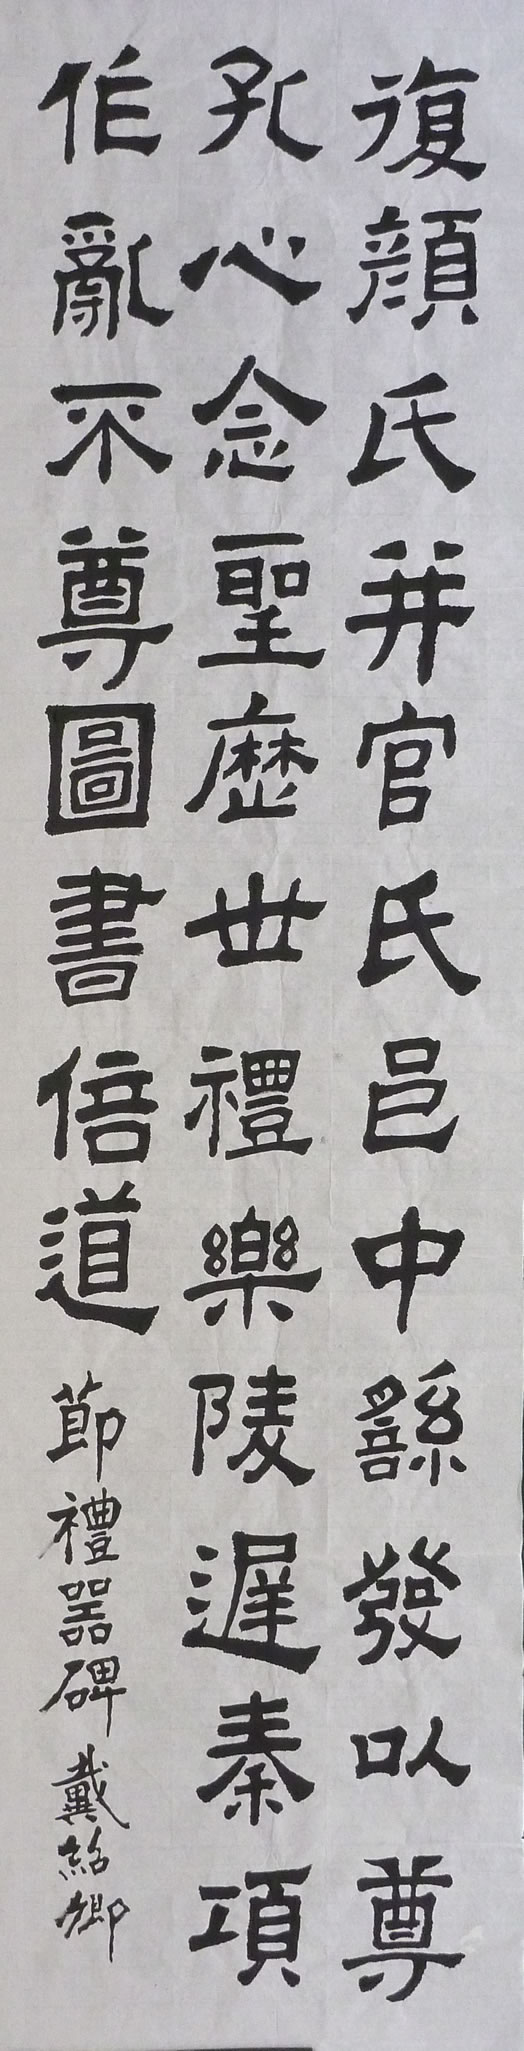 復顏氏并官氏邑中繇發以尊
孔心念聖歷世禮樂陵遲秦項
作亂不尊圖書倍道
節禮器碑 戴紹卿